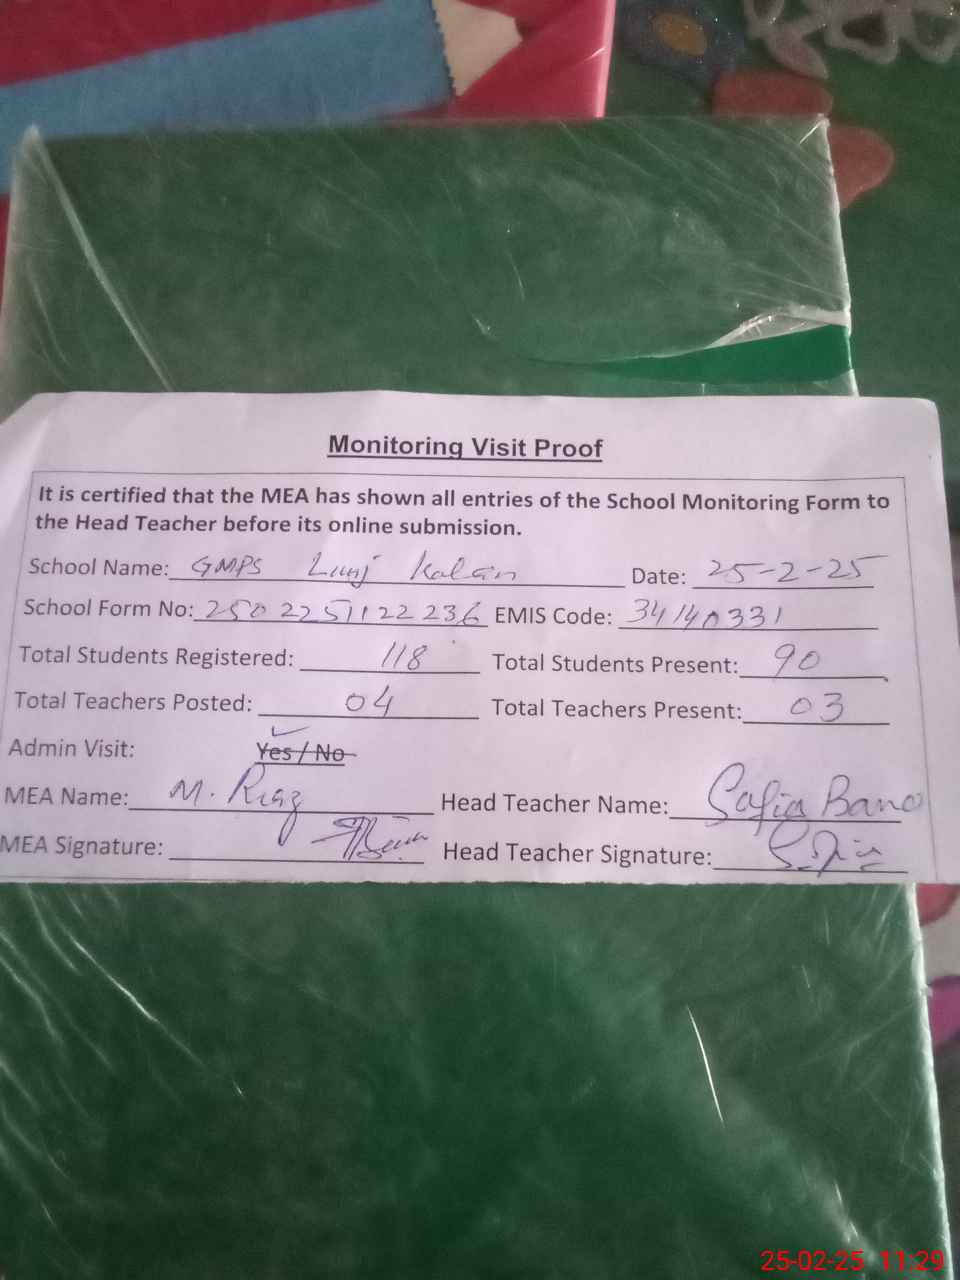 Monitoring Visit Proof
It is certified that the MEA has shown all entries of the School Monitoring Form to
the Head Teacher before its online submission.
School Name: GMPS Lunj Kalan Date: 25-2-25
School Form No: 2502251122236 EMIS Code: 34140331
Total Students Registered: 118 Total Students Present: 90
Total Teachers Posted: 04 Total Teachers Present: 03
Admin Visit: Yes / No
MEA Name: M. Riaz Head Teacher Name: Safia Bano
MEA Signature: Head Teacher Signature:
25-02-25 11:29